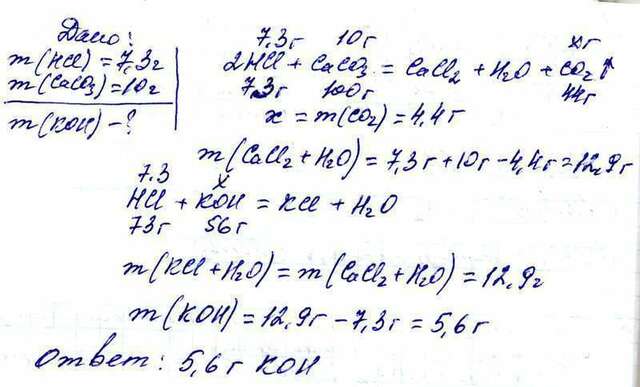 Дано:
m(HCl) = 7,3г
m(CaCO3) = 10г
m(KOH) - ?
7,3г 10г xг
2HCl + CaCO3 = CaCl2 + H2O + CO2↑
7,3г 100г 44г
x = m(CO2) = 4,4г
m(CaCl2 + H2O) = 7,3г + 10г - 4,4г = 12,9г
7.3 x
HCl + KOH = KCl + H2O
73г 56г
m(KCl + H2O) = m(CaCl2 + H2O) = 12,9г
m(KOH) = 12,9г - 7,3г = 5,6г
Ответ: 5,6г KOH